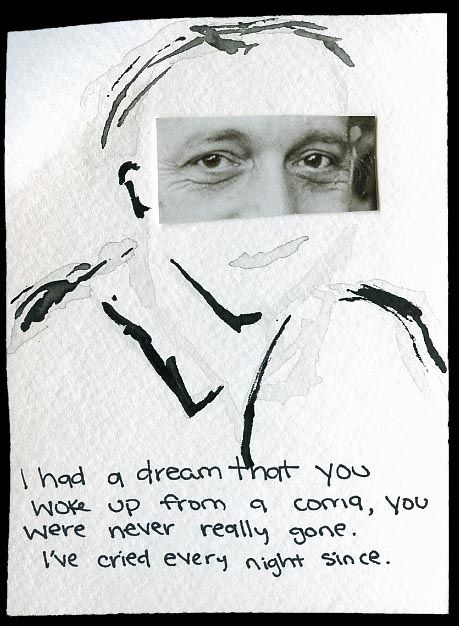 I had a dream that you
woke up from a coma, you
were never really gone.
I've cried every night since.